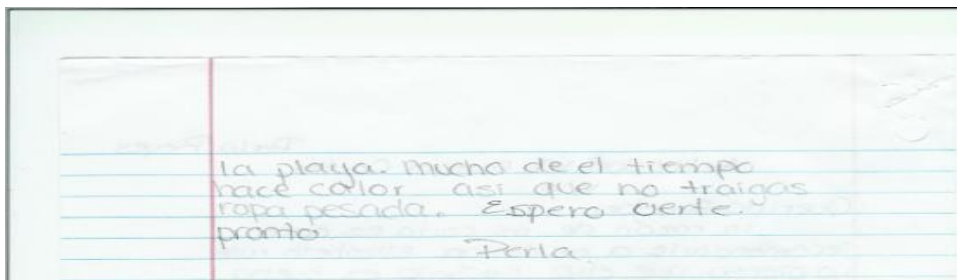 la playa. mucho de el tiempo
hace calor asi que no traigas
ropa pesada. Espero verte.
pronto
Perla.